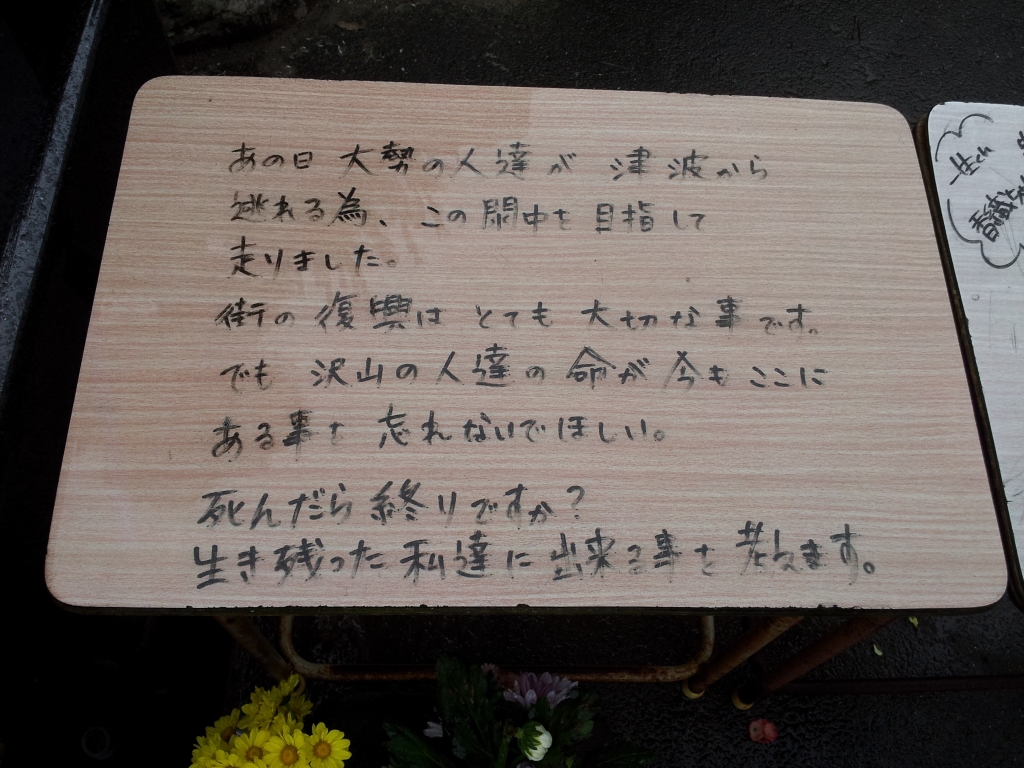 あの日 大勢の人達が 津波から
逃れる為、この閖中を目指して
走りました。
街の復興は とても 大切な事です。
でも 沢山の人達の 命が 今も ここに
ある事を 忘れないでほしい。
死んだら終りですか？
生き残った私達に出来る事を考えます。